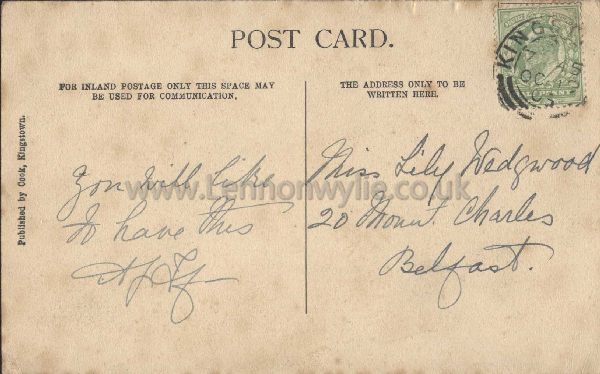 POST CARD.
FOR INLAND POSTAGE ONLY THIS SPACE MAY
BE USED FOR COMMUNICATION.
THE ADDRESS ONLY TO BE
WRITTEN HERE.
Published by Cook, Kingstown.
You will like
to have this
Miss Lily Wedgwood
20 Mount Charles
Belfast.
www.Lennonwylie.co.uk
KINGST
OC
PENNY